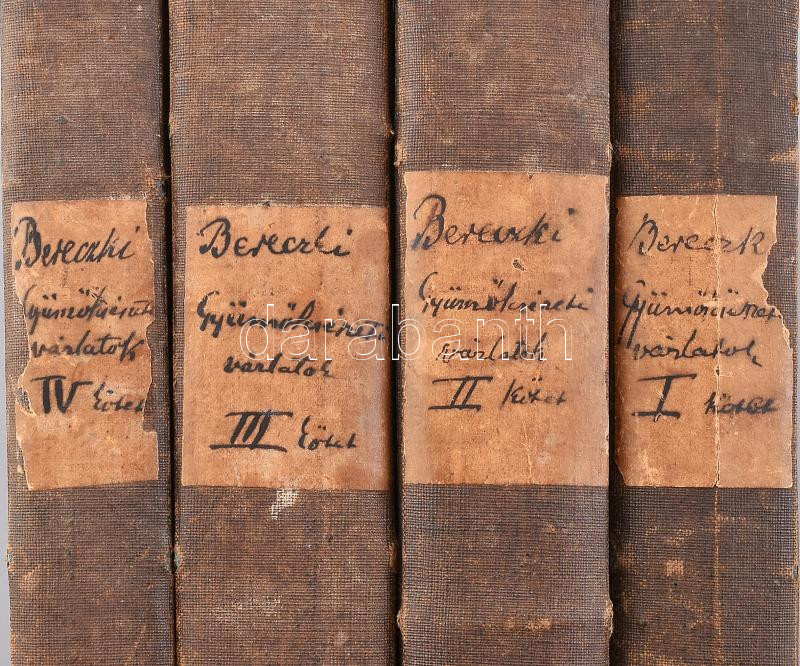 Bereczki
Gyümölcsészeti
vázlatok
IV kötet
Bereczki
Gyümölcsészeti
vázlatok
III kötet
Bereczki
Gyümölcsészeti
vázlatok
II kötet
Bereczk
Gyümölcsészet
vázlatok
I kötet
darabanth